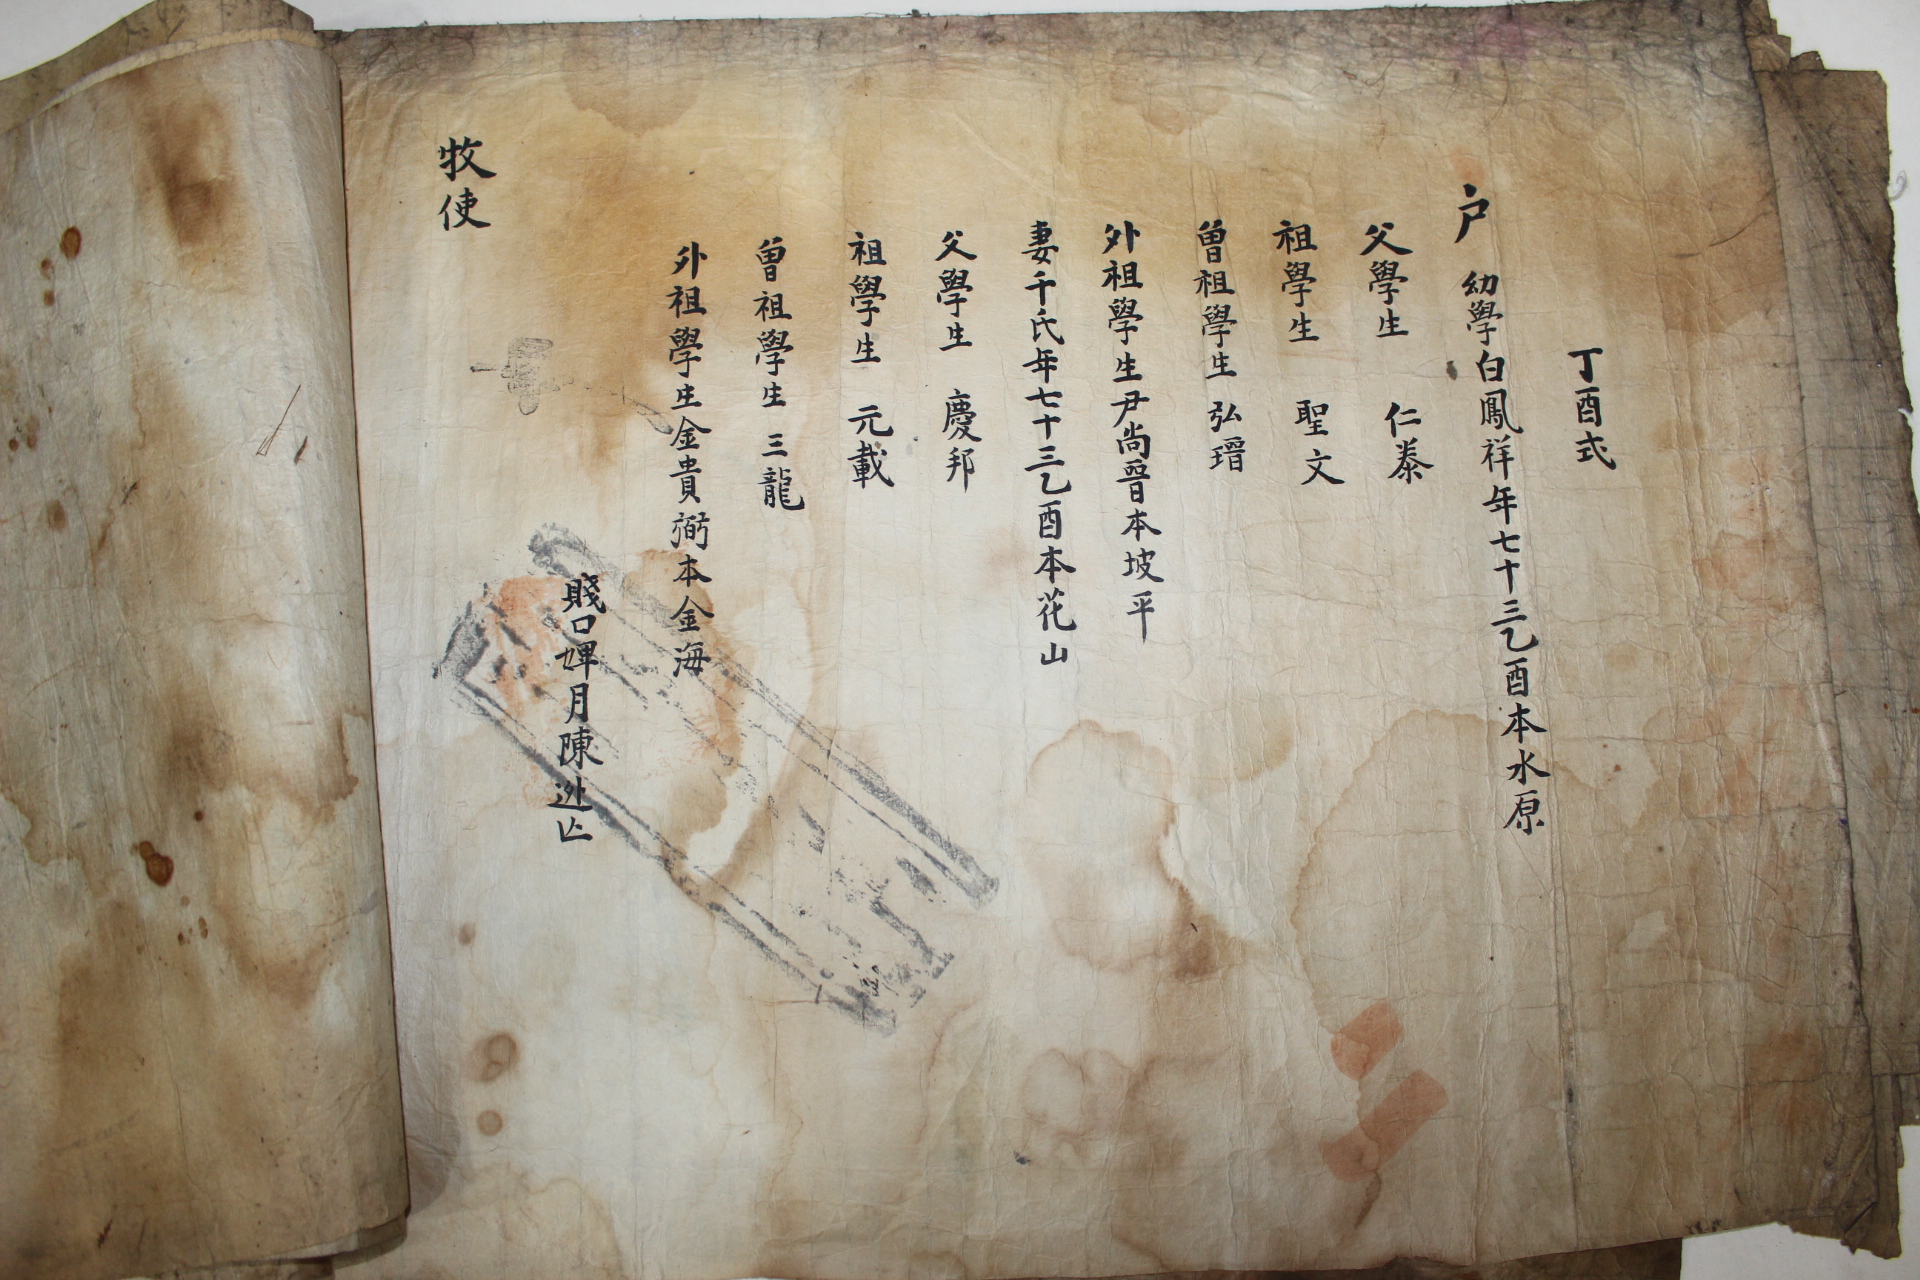 丁酉式
户 幼學白鳳祥年七十三乙酉本水原
父學生 仁泰
祖學生 聖文
曾祖學生 弘瑨
外祖學生尹尚晉本坡平
妻千氏年七十三乙酉本花山
父學生 慶邦
祖學生 元載
曾祖學生 三龍
外祖學生金貴弼本金海
賤口婢月陳迯亡
牧使